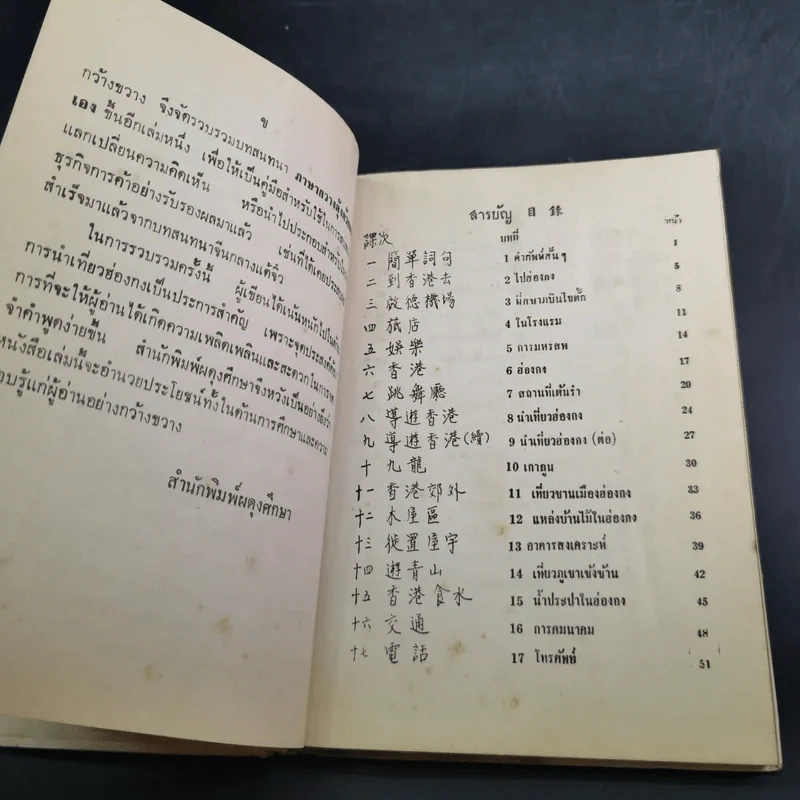 ข
กว้างขวาง จึงจัดรวบรวมบทสนทนา ภาษากวางตุ้ง
เอง ขึ้นอีกเล่มหนึ่ง เพื่อให้เป็นคู่มือสำหรับใช้ในการ
แลกเปลี่ยนความคิดเห็น หรือนำไปประกอบสำหรับ
ธุรกิจการค้าอย่างรับรองผลมาแล้ว เช่นที่ได้เคย
สำเร็จมาแล้วจากบทสนทนาจีนกลางแต้จิ๋ว
ในการรวบรวมครั้งนี้ ผู้เขียนได้เน้นหนักไปใน
การนำเที่ยวฮ่องกงเป็นประการสำคัญ เพราะจุดประสงค์
การที่จะให้ผู้อ่านได้เกิดความเพลิดเพลินและสะดวกในการ
จำคำพูดง่ายขึ้น สำนักพิมพ์ผดุงศึกษาจึงหวังเป็นอย่างยิ่งว่า
หนังสือเล่มนี้จะอำนวยประโยชน์ทั้งในด้านการศึกษาและความ
รอบรู้แก่ผู้อ่านอย่างกว้างขวาง
สำนักพิมพ์ผดุงศึกษา
สารบัญ 目錄
課次 บทที่ หน้า
一 簡單詞句 1 คำศัพท์สั้นๆ 1
二 到香港去 2 ไปฮ่องกง 5
三 啟德機場 3 ที่สนามบินไขตั๊ก 8
四 旅店 4 ในโรงแรม 11
五 娛樂 5 การมหรสพ 14
六 香港 6 ฮ่องกง 17
七 跳舞廳 7 สถานที่เต้นรำ 20
八 導遊香港 8 นำเที่ยวฮ่องกง 24
九 導遊香港(續) 9 นำเที่ยวฮ่องกง (ต่อ) 27
十 九龍 10 เกาลูน 30
十一 香港郊外 11 เที่ยวชานเมืองฮ่องกง 33
十二 木屋區 12 แหล่งบ้านไม้ในฮ่องกง 36
十三 徙置屋宇 13 อาคารสงเคราะห์ 39
十四 遊青山 14 เที่ยวภูเขาเช้งซ้าน 42
十五 香港食水 15 น้ำประปาในฮ่องกง 45
十六 交通 16 การคมนาคม 48
十七 電話 17 โทรศัพท์ 51